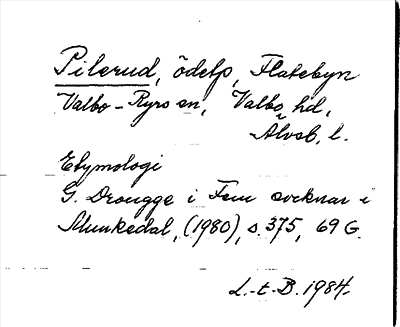 Pilerud, ödelp, Flatebyn
Valbo-Ryrs sn, Valbo hd,
Älvsb. l.
Etymologi
G. Drougge i Fem socknar i
Munkedal, (1980), s. 375, 69 G.
L.-t-B. 1984.